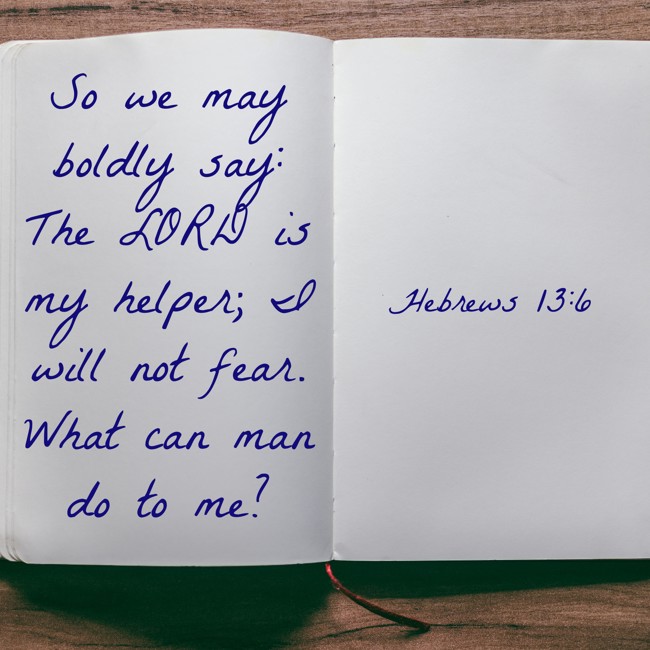 So we may
boldly say:
The LORD is
my helper; I
will not fear.
What can man
do to me?
Hebrews 13:6